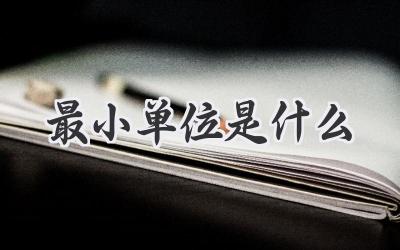 最小单位是什么